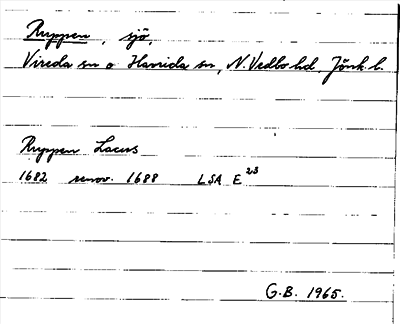 Ruppen, sjö,
Vireda sn o Haurida sn, N. Vedbo hd, Jönk. l.
Ruppen Lacus
1682 renov. 1688 LSA E 23
G.B. 1965.